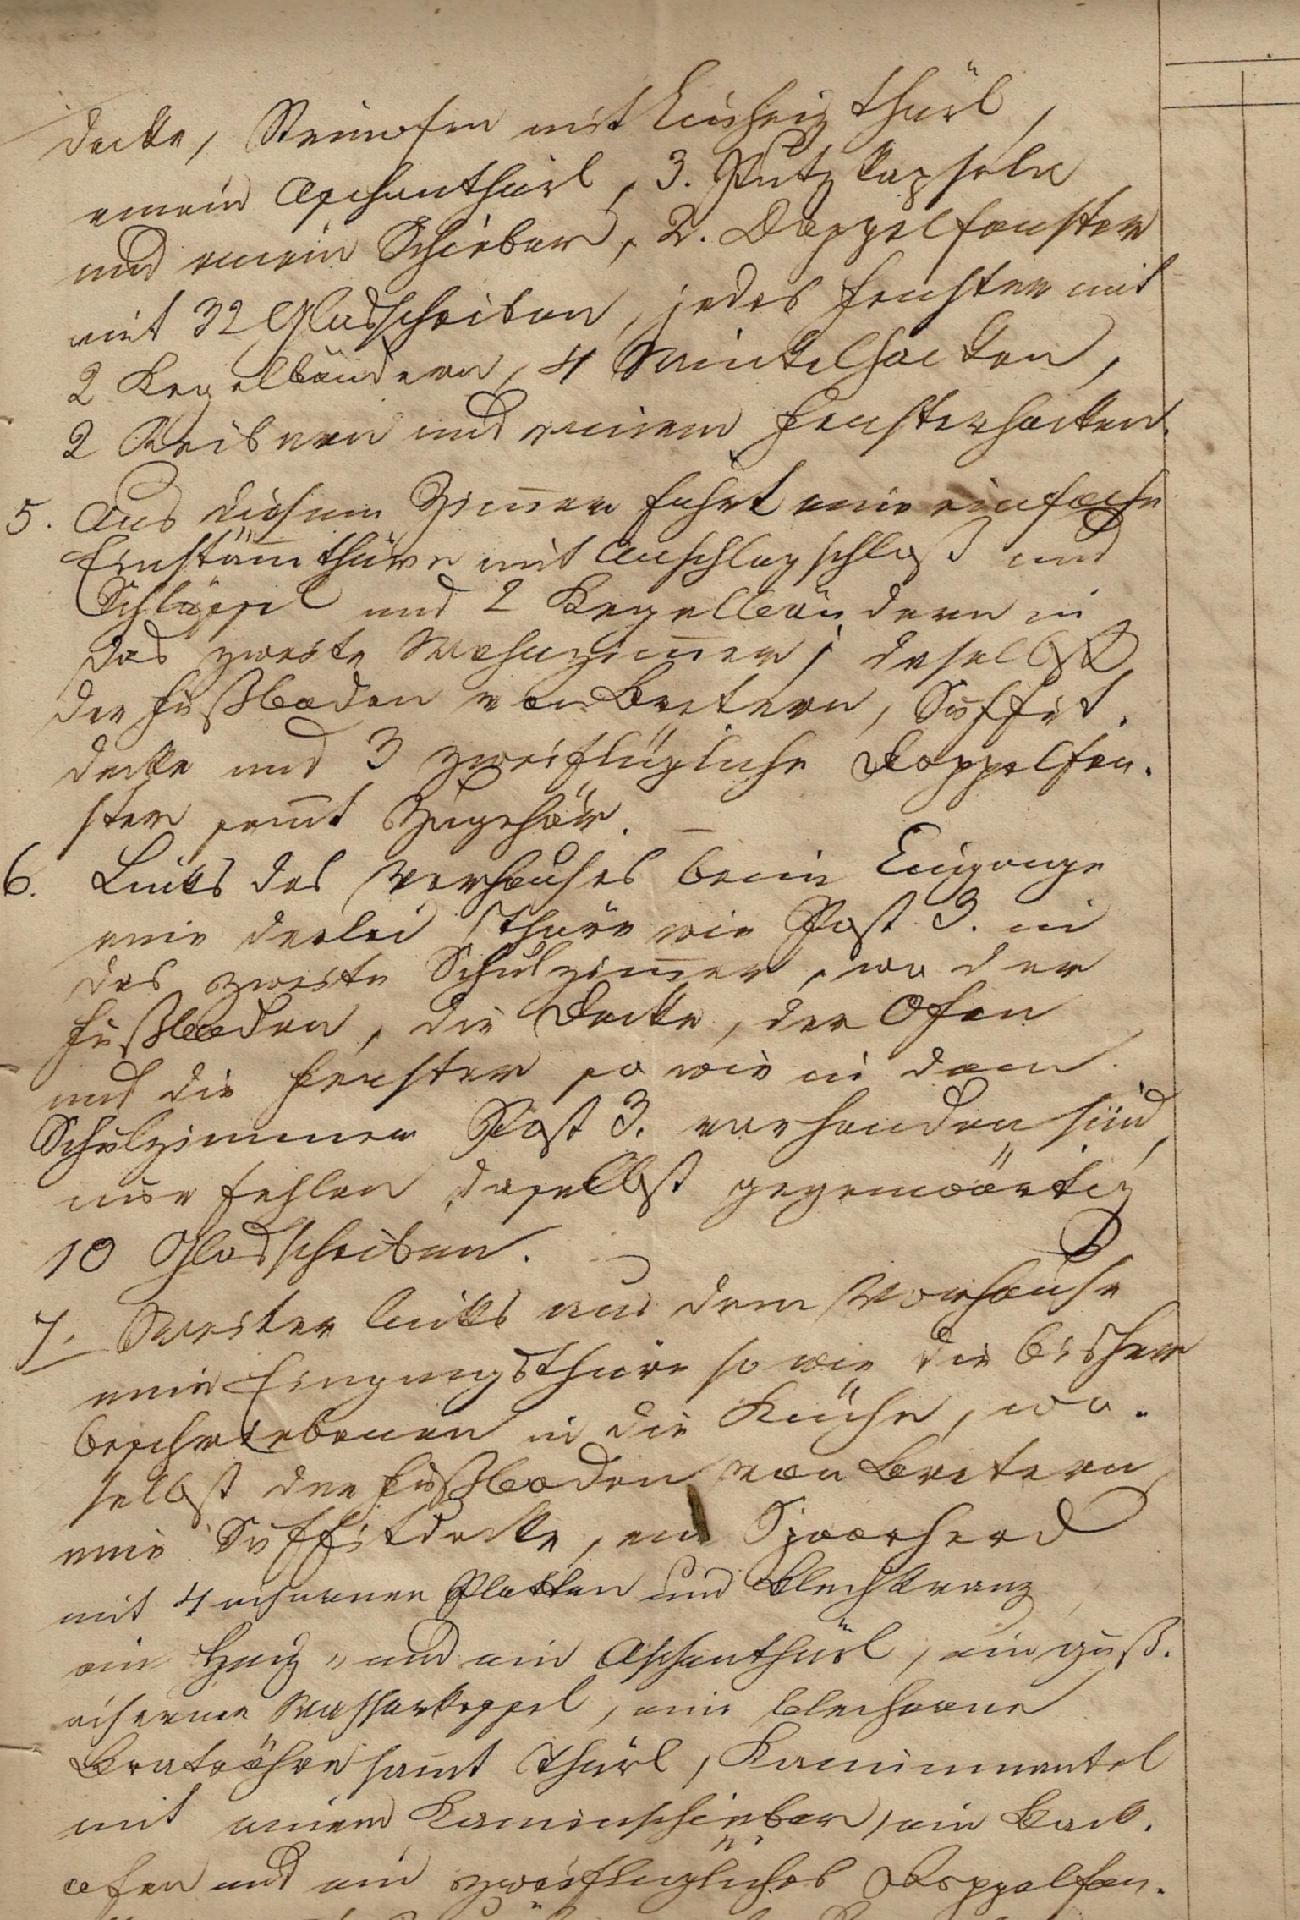 decke, Steinofen mit Einheizthürl,
einem Aschenthürl, 3. Putzkapseln
und einem Schieber, 2. Doppelfenster
mit 32 Glasscheiben, jedes Fenster mit
2 Kegelbändern, 4 Winkelhacken,
2 Reibern und einem Fensterhacken.
5. Aus diesem Zim̄er fuhrt eine einfache
Einstäm̄thüre mit Anschlagschloß und
Schlüssel und 2 Kegelbändern in
das zweite Wohnzim̄er; daselbst
der Fußboden von Bretern, Suffit.
decke und 3 zweiflüglige Doppelfen.
ster sam̄t Zugehör. –
6. Links des Vorhauses beim Eingange
eine derlei Thüre wie Post 3. in
das zweite Schulzim̄er, wo der
Fußboden, die Decke, der Ofen
und die Fenster so wie in dem
Schulzimmer Post 3. vorhanden sind,
nur fehlen daselbst gegenwärtig
10 Glasscheiben.
7. Weiter links aus dem Vorhause
eine Eingangsthüre so wie die bisher
beschriebenen in die Küche, wo.
selbst der Fußboden von Bretern,
eine Suffitdecke, ein Spaarherd
mit 4 eisernen Platten und Blechkranz,
ein Heiz- und ein Aschenthürl, ein guß.
eiserne Wasserkessel, eine blecherne
Bratröhre sam̄t Thürl, Kaminmantel
mit einem Kaminschieber, ein Back.
ofen und ein zweiflügliches Doppelfen.